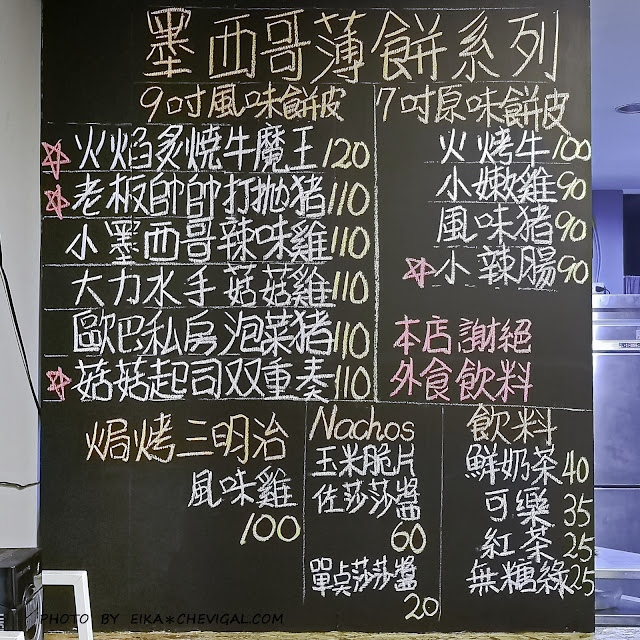 墨西哥薄餅系列
9吋風味餅皮
☆火焰炙燒牛魔王120
☆老板帥帥打拋豬110
小墨西哥辣味雞110
大力水手菇菇雞110
歐巴私房泡菜豬110
☆菇菇起司双重奏110
7吋原味餅皮
火烤牛100
小嫩雞90
風味豬90
☆小辣腸90
本店謝絕
外食飲料
焗烤三明治
風味雞
100
Nachos
玉米脆片
佐莎莎醬
60
單点莎莎醬
20
飲料
鮮奶茶40
可樂35
紅茶25
無糖綠25
PHOTO BY EIKA*CHEVIGAL.COM